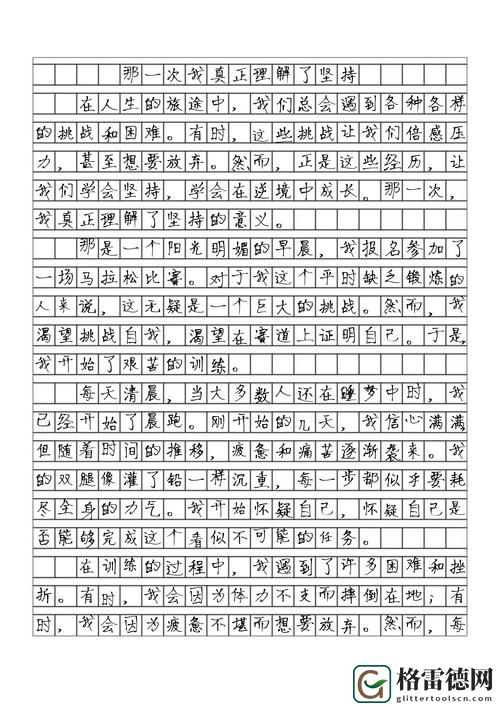 那一次我真正理解了坚持
在人生的旅途中，我们总会遇到各种各样
的挑战和困难。有时，这些挑战让我们倍感压
力，甚至想要放弃。然而，正是这些经历，让
我们学会坚持，学会在逆境中成长。那一次，
我真正理解了坚持的意义。
那是一个阳光明媚的早晨，我报名参加了
一场马拉松比赛。对于我这个平时缺乏锻炼的
人来说，这无疑是一个巨大的挑战。然而，我
渴望挑战自我，渴望在赛道上证明自己。于是，
我开始了艰苦的训练。
每天清晨，当大多数人还在睡梦中时，我
已经开始了晨跑。刚开始的几天，我信心满满，
但随着时间的推移，疲惫和痛苦逐渐袭来。我
的双腿像灌了铅一样沉重，每一步都似乎要耗
尽全身的力气。我开始怀疑自己，怀疑自己是
否能够完成这个看似不可能的任务。
在训练的过程中，我遇到了许多困难和挫
折。有时，我会因为体力不支而摔倒在地；有
时，我会因为疲惫不堪而想要放弃。然而，每
格雷德网
glittertoolscn.com